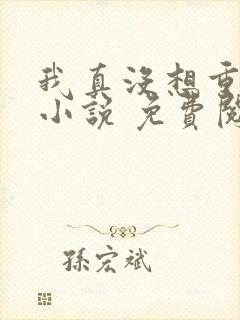 我真没想重
小説 免費閱
孫宏斌